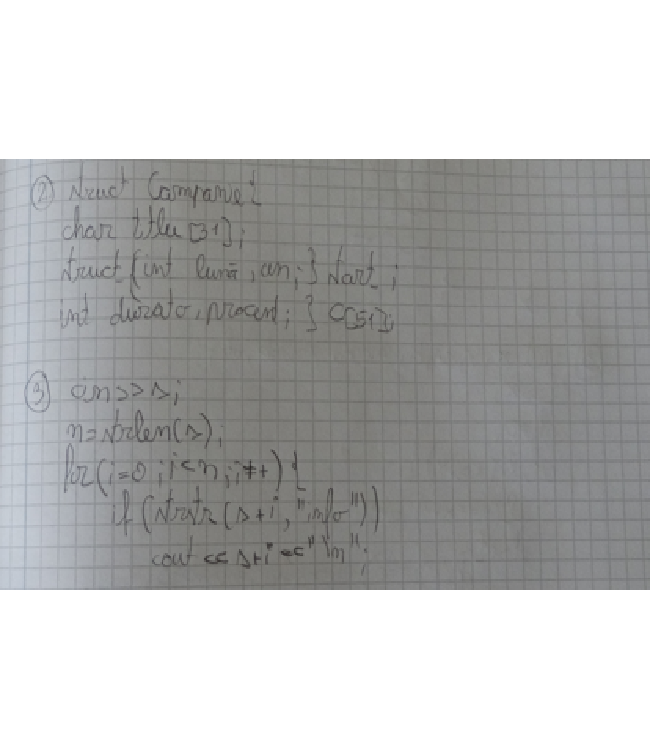 ② struct Campanie{
char titlu [31];
struct {int lună, an; } start ;
int durata, procent; } C[51];
③ cin>>s;
n=strlen(s);
for(i=0;i<n;i++) {
if (strstr(s+i, "info"))
cout << s+i <<"\n";